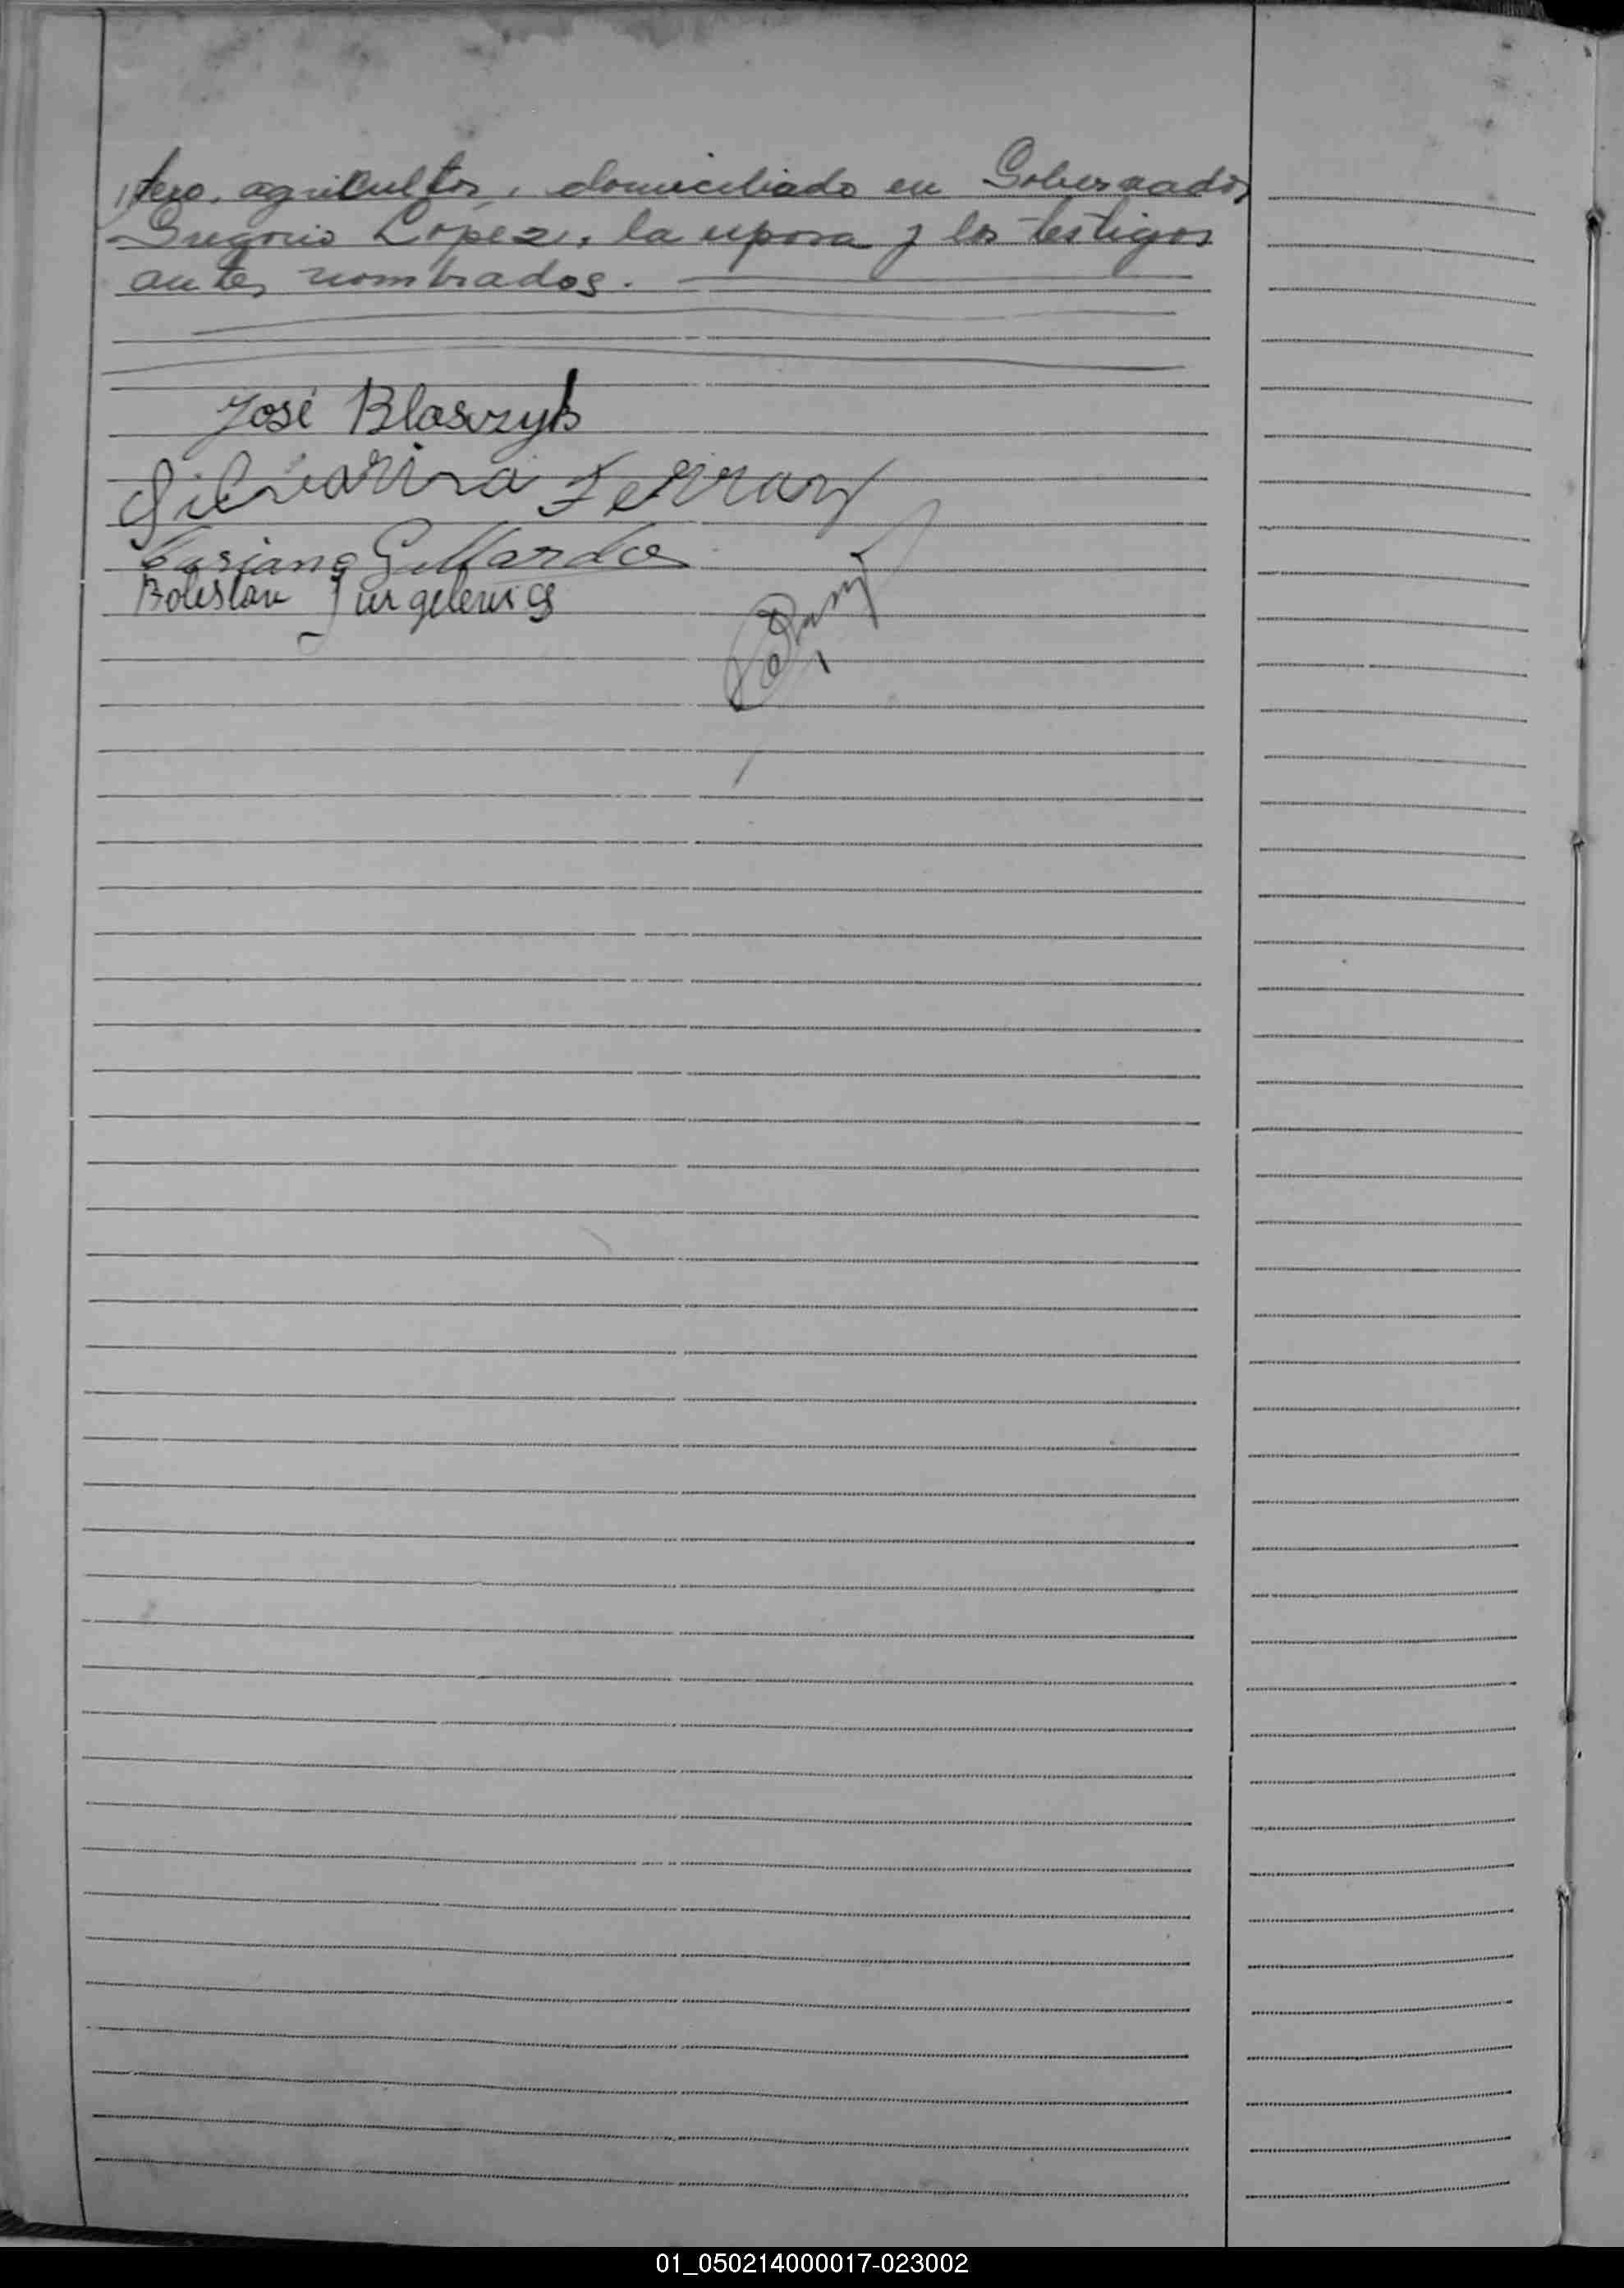 /tero, agricultor, domiciliado en Gobernador
Gregorio López, la esposa y los testigos
antes nombrados.
José Blaszyk
Silvarina Ferrary
Mariano Gallardo
Boleslau Jurgelewicz
01_050214000017-023002